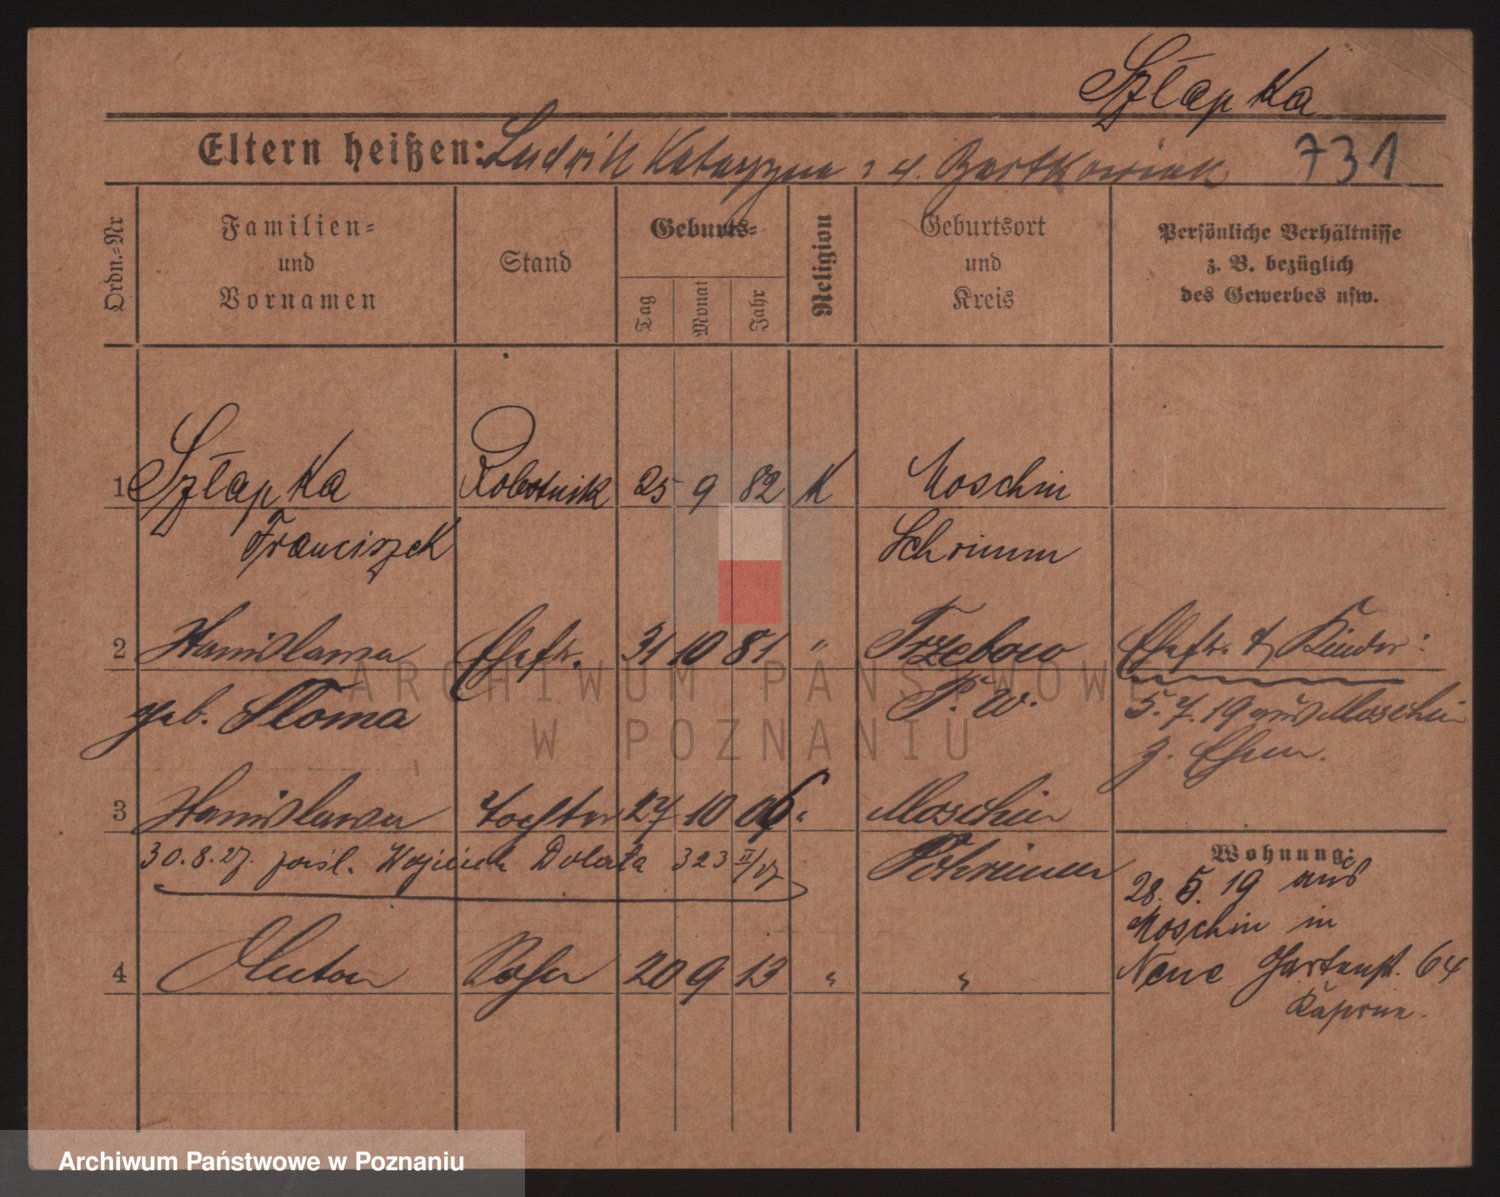 Szłapka
Eltern heißen: Ludwik Katarzyna z d. Bartkowiak 731
Ordn.-Nr
Familien-
und
Vornamen
Stand
Geburts-
Tag
Monat
Jahr
Religion
Geburtsort
und
Kreis
Persönliche Verhältnisse
z. B. bezüglich
des Gewerbes usw.
1 Szłapka Robotnik 25 9 82 K Moschin
Franciszek Schrimm
2 Stanislawa Ehefr. 31 10 81 " Trzebow Ehefr. & Kinder:
geb. Słoma P. W. 5. 7. 19 aus Moschin
z. Ehem.
3 Stanislawa Tochter 27 10 06 " Moschin
30.8.27. pośl. Wojciech Dolata 323 II/27 Schrimm
Wohnung:
28. 5. 19 aus
Moschin in
4 Anton Sohn 20 9 13 " " Neue Gartenst. 64
ARCHIWUM PAŃSTWOWE
W POZNANIU
Archiwum Państwowe w Poznaniu